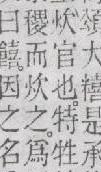 頌大糦是承
炊官也。特牲
稷而炊之。爲
曰饎。因之名